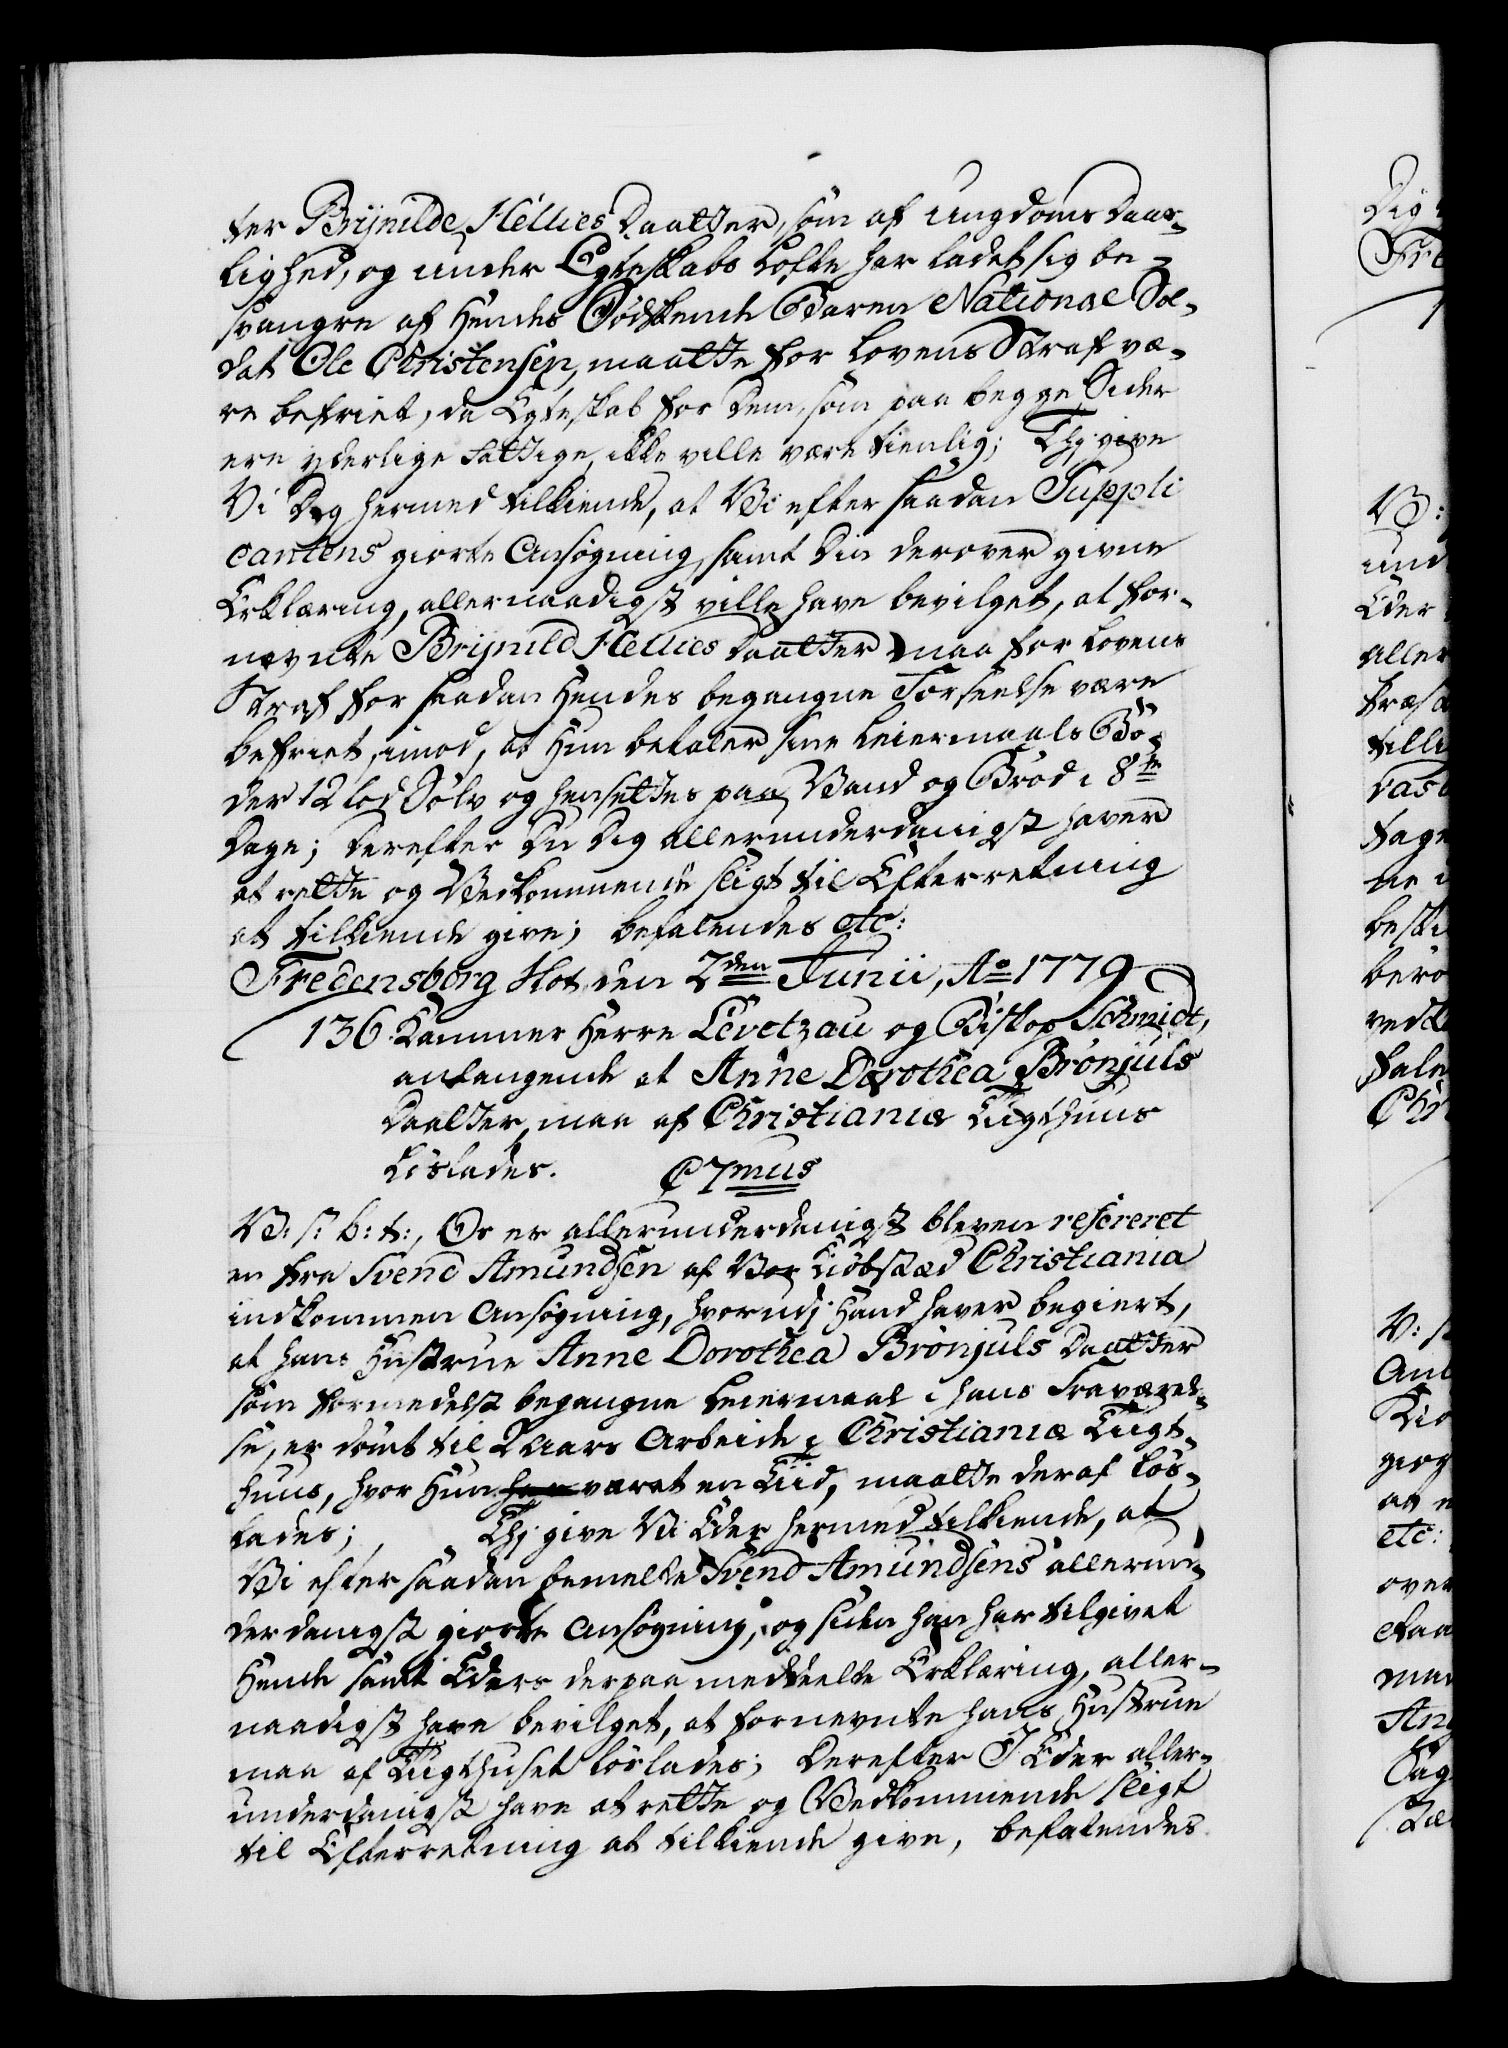 ter Brijnilde Hellies Daatter, som af Ungdoms Daar-
lighed, og under Egteskabs Løfte har ladet sig be-
svangre af Hendes Sødskende Baren National Sol-
dat Ole Christensen, maatte for Lovens Straf væ-
re befriet, da Egteskab for dem, som paa begge Sider
ere yderlige fattige, ikke ville være tienlig; Thj give
Vi Dig hermed tilkiende, at Vi efter saadan Suppli
cantens giorte Ansøgning, samt Din derover givne
Erklæring, allernaadigst ville have bevilget, at for-
nevnte Brijnild Hellies Daatter maa for Lovens
Straf for saadan Hendes begangne Forseelse være
befriet, imod, at Hun betaler sine Leiermaals Bø-
der 12 Lod Sølv og hensettes paa Vand og Brød i 8te
Dage; Derefter Du Dig allerunderdanigst haver
at rette og Vedkommende sligt til Efterretning
at tilkiende give; befalendes etc:
Fredensborg Slot den 2den Junii, Ao 1779
136. Kammer Herre Levetzau og Biskop Schmidt,
anlangende at Anne Dorothea Brønjuls
Daatter, maa af Christianiæ Tugthuus
løslades. C7mus
V: s: b: t:, Os er allerunderdanigst bleven refereret
en fra Svend Amundsen af Vor Kiøbstæd Christiania
indkommen Ansøgning, hvorudj Hand haver begiert,
at hans Hustrue Anne Dorothea Brønjuls Daatter
som formedelst begangne Leiermaal i hans Fraværel-
se, er dømt til 2 Aars Arbeide i Christianiæ Tugt-
huus, hvor Hun har været en Tiid, maatte deraf løs-
lades; Thj give Vi Eder hermed tilkiende, at
Vi efter saadan bemelte Svend Amundsens allerun-
derdanigst giorte Ansøgning, og siden han har tilgivet
Hende samt Eders derpaa meddeelte Erklæring, aller-
naadigst have bevilget, at fornevnte hans Hustrue
maa af Tugthuset løslades; Derefter I Eder aller-
underdanigst have at rette og Vedkommende sligt
til Efterretning at tilkiende give, befalendes